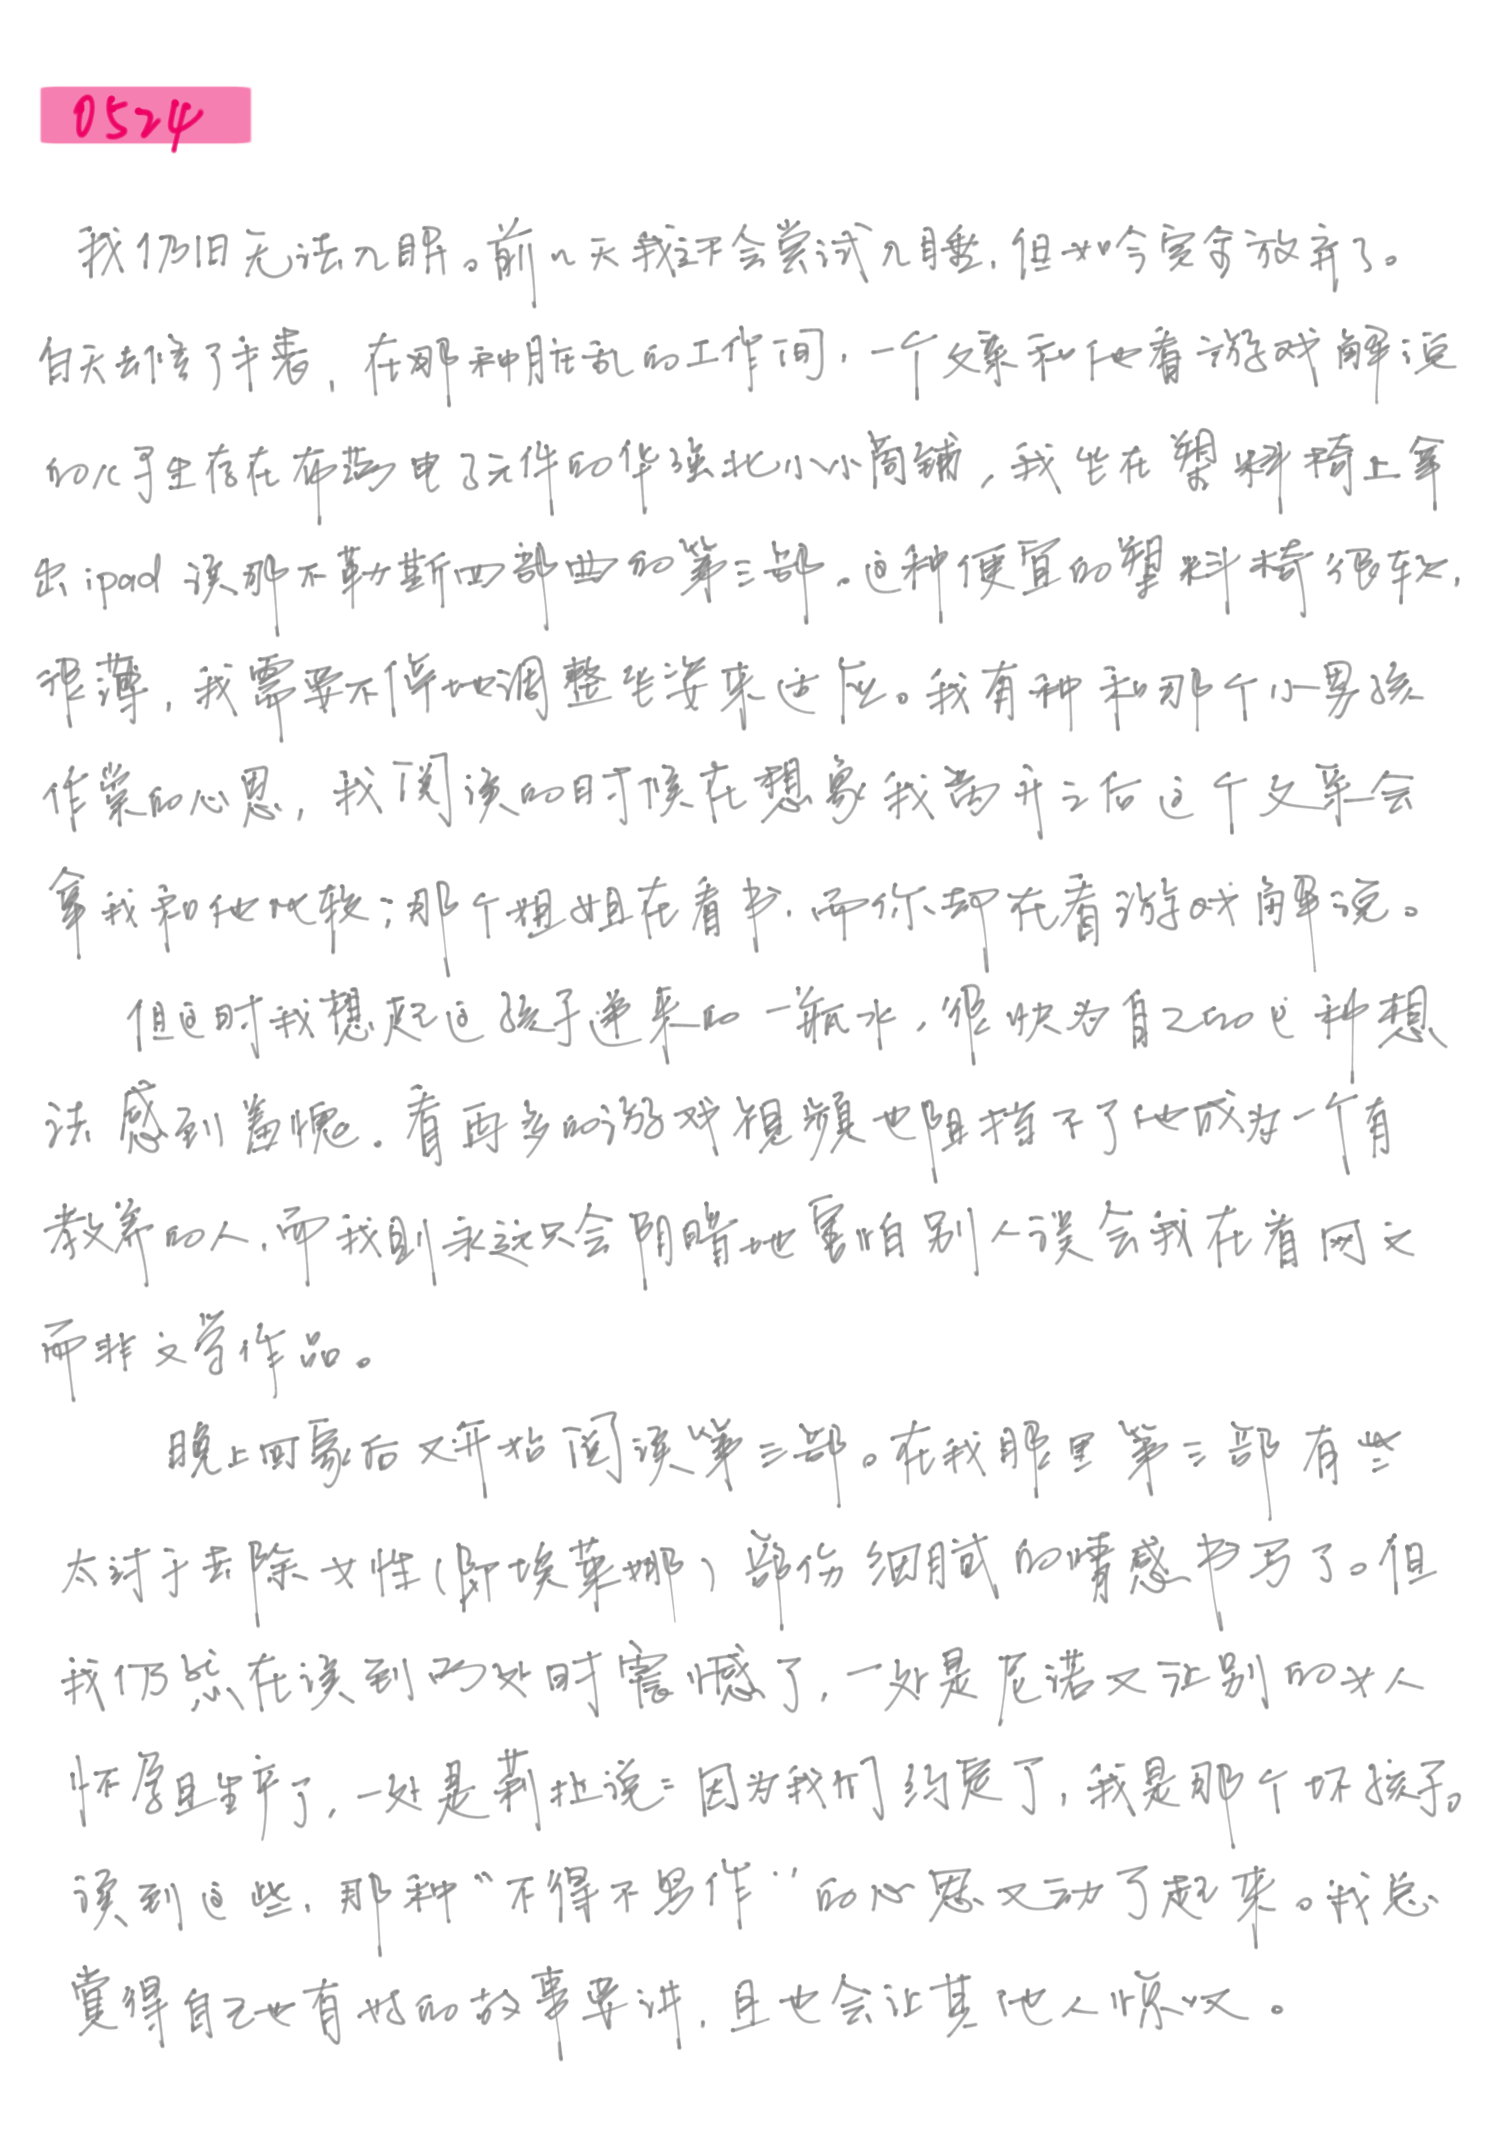 0524
我仍旧无法入眠。前几天我还会尝试入睡，但如今完全放弃了。
白天去修了手表，在那种脏乱的工作间，一个父亲和他看游戏解说
的儿子生存在布满电子元件的华强北小小商铺，我坐在塑料椅上拿
出ipad读那不勒斯四部曲的第三部。这种便宜的塑料椅很软，
很薄，我需要不停地调整坐姿来适应。我有种和那个小男孩
作案的心思，我阅读的时候在想象我离开之后这个父亲会
拿我和他比较；那个姐姐在看书，而你却在看游戏解说。
但这时我想起这孩子递来的一瓶水，很快为自己的这种想
法感到羞愧。看再多的游戏视频也阻挡不了他成为一个有
教养的人，而我则永远只会阴暗地害怕别人误会我在看网文
而非文学作品。
晚上回家后又开始阅读第三部。在我那里第三部有些
太过于去除女性（即埃莱娜）部份细腻的情感书写了。但
我仍然在读到两处时震憾了，一处是尼诺又让别的女人
怀孕且生产了，一处是莉拉说：因为我们约定了，我是那个坏孩子。
读到这些，那种“不得不写作”的心思又动了起来。我总
觉得自己也有好的故事要讲，且也会让其他人惊叹。